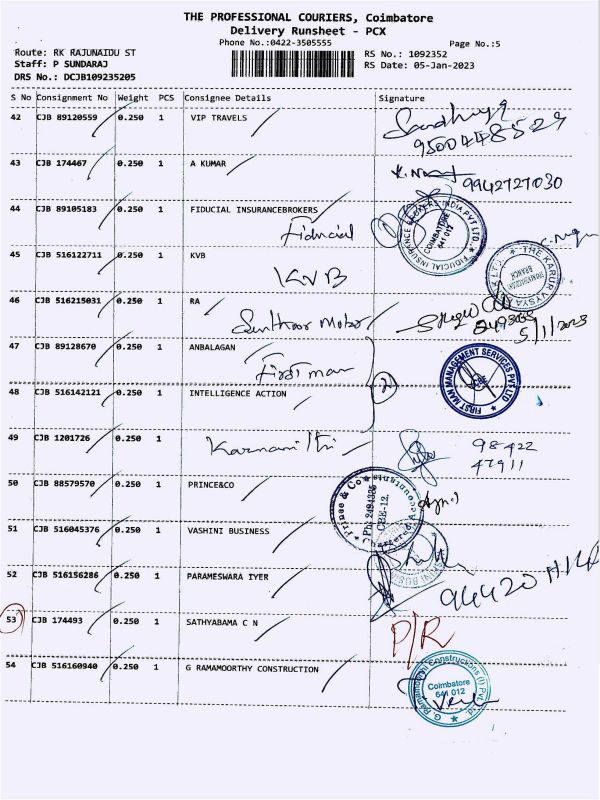 THE PROFESSIONAL COURIERS, Coimbatore
Delivery Runsheet - PCX
Phone No.:0422-3505555
Page No.:5
Route: RK RAJUNAIDU ST
RS No.: 1092352
Staff: P SUNDARAJ
RS Date: 05-Jan-2023
DRS No.: DCJB109235205
S No Consignment No Weight PCS Consignee Details Signature
42 CJB 89120559 0.250 1 VIP TRAVELS
9500448529
43 CJB 174467 0.250 1 A KUMAR
9942727030
44 CJB 89105183 0.250 1 FIDUCIAL INSURANCEBROKERS
Fiducial
FIDUCIAL INSURANCE BROKERS INDIA PVT LTD.
COIMBATORE
641 012
45 CJB 516122711 0.250 1 KVB
KVB
THE KARUR VYSYA BANK LTD.
BRANCH
46 CJB 516215031 0.250 1 RA
5/1/2023
47 CJB 89128670 0.250 1 ANBALAGAN
First man
2
FIRST MAN MANAGEMENT SERVICES PVT LTD
CBE
48 CJB 516142121 0.250 1 INTELLIGENCE ACTION
49 CJB 1201726 0.250 1
98422
47911
50 CJB 88579570 0.250 1 PRINCE&CO
Prince & Co
Chartered Accountants
CBE-12.
51 CJB 516045376 0.250 1 VASHINI BUSINESS
52 CJB 516156286 0.250 1 PARAMESWARA IYER
94420
53 CJB 174493 0.250 1 SATHYABAMA C N
P/R
54 CJB 516160940 0.250 1 G RAMAMOORTHY CONSTRUCTION
G. Ramamoorthy Constructions (I) Pvt Ltd.
Coimbatore
641 012